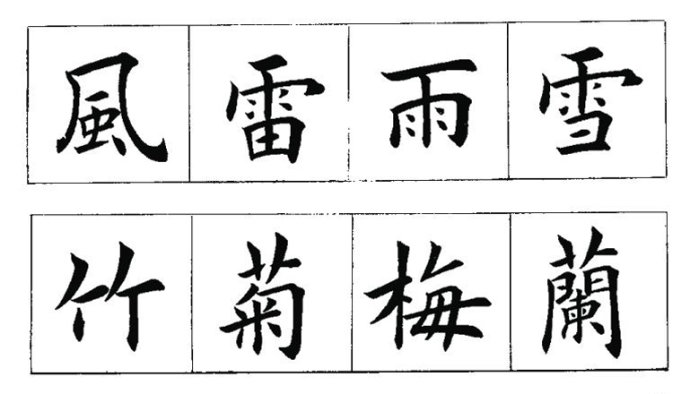 風雷雨雪
竹菊梅蘭